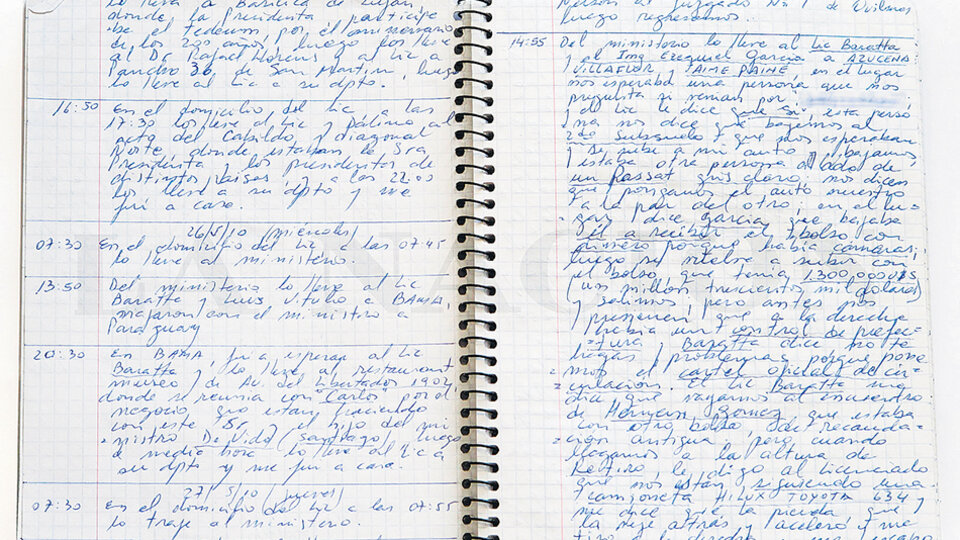 lo llevé a Basílica de Luján
donde la Presidenta participó
de el tedeum, por el aniversario
de los 200 años, luego los llevé
al Dr Rafael Llorens y al Lic a
Pancho 36 de San Martín, luego
lo llevé al Lic a su dpto.
16:50 En el domicilio del Lic a las
17:30 los llevé al Lic y Palmira al
acto del Cabildo y diagonal
Norte donde estaban la Sra
Presidenta y los presidentes de
distintos países y a las 22:05
los llevé a su dpto y me
fui a casa.
26/5/10 (miércoles)
07:30 En el domicilio del Lic a las 07:45
lo llevé al ministerio.
13:50 Del ministerio lo llevé al Lic
Baratta y Luis Vitulo a BAMA,
viajaron con el ministro a
Paraguay
20:30 En BAMA, fui a esperar al Lic
Baratta y lo llevé al restaurant
museo, de Av. del Libertador 1902,
donde se reunía con "Carlos" por el
negocio que están haciendo
con este Sr. y el hijo del mi-
nistro De Vido (Santiago), luego
de media hora lo llevé al Lic a
su dpto y me fui a casa.
27/5/10 (jueves)
07:30 En el domicilio del Lic a las 07:55
lo traje al ministerio.
al Juzgado Nº 1 de Quilmes
luego regresamos.
14:55 Del ministerio lo llevé al Lic Baratta
y al Ing Ezequiel García a AZUCENA
VILLAFLOR y JAIME PAINE, en el lugar
nos esperaba una persona que nos
pregunta si venían por
el Lic le dice que Sí, esta perso-
na nos dice que bajemos al
2do Subsuelo y que nos esperaban
y se sube a mi auto y bajamos,
estaba otra persona al lado de
un Passat gris claro, nos dicen
que pongamos el auto nuestro
a la par del otro; en el lu-
gar dice García que bajaba
él a recibir el bolso con
dinero porque había cámaras;
luego se vuelve a subir con
el bolso, que tenía 1.300.000 U$S
(un millón trescientos mil dólares)
y salimos, pero antes nos
previenen que a la derecha
había un control de prefec-
tura y Baratta dice no te
hagas problemas porque pone-
mos el cartel oficial de cir-
culación. El Lic Baratta me
dice que vayamos al encuentro
de Hernan Gomez que estaba
con otro bolso de recauda-
ción antigua; pero cuando
llegamos a la altura de
Retiro, le digo al Licenciado
que nos están siguiendo una
camioneta HILUX TOYOTA 634 y
me dice que la pierda, que
la deje atrás y aceleró